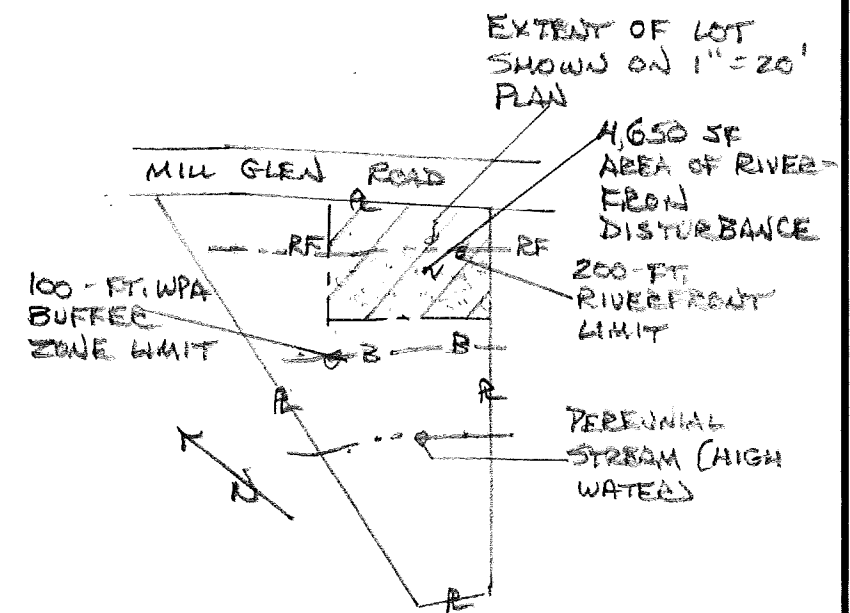 EXTENT OF LOT
SHOWN ON 1" = 20'
PLAN
4,650 SF
AREA OF RIVER-
FRON
DISTURBANCE
MILL GLEN ROAD
PL
RF
RF
200-FT.
RIVERFRONT
LIMIT
100-FT. WPA
BUFFER
ZONE LIMIT
B
B
PL
PL
PERENNIAL
STREAM (HIGH
WATER)
N
PL